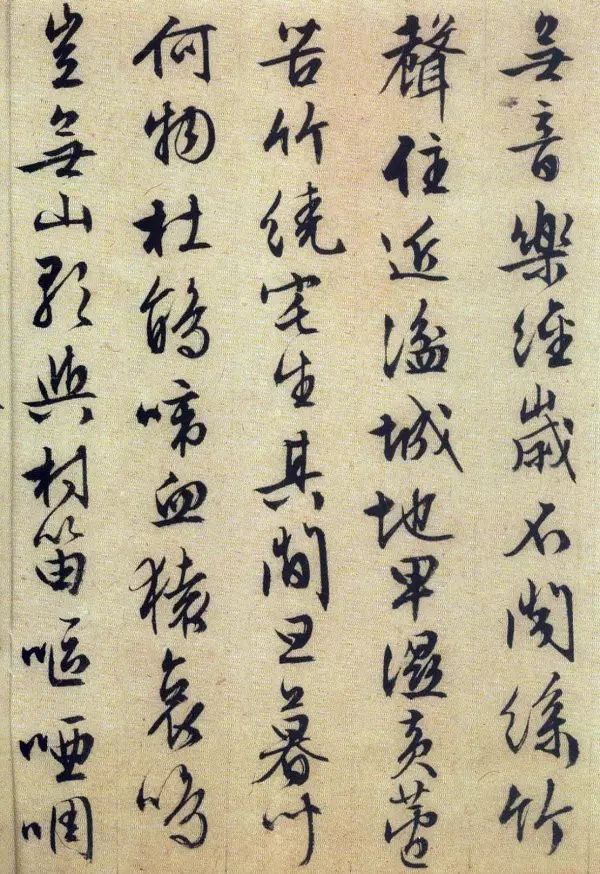 無音樂經歲不聞絲竹
聲住近湓城地卑濕黃蘆
苦竹繞宅生其間旦暮聞
何物杜鵑啼血猿哀鳴
豈無山歌與村笛嘔啞啁